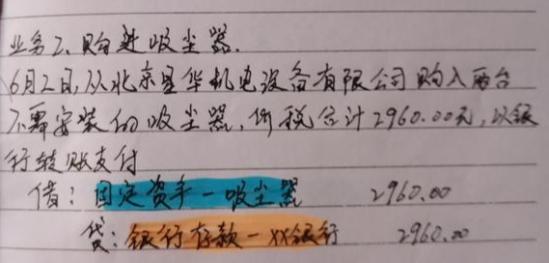 业务2、购进吸尘器.
6月2日,从北京星华机电设备有限公司购入两台
不需安装的吸尘器,价税合计2960.00元,以银
行转账支付
借:固定资产-吸尘器 2960.00
贷:银行存款-XX银行 2960.00